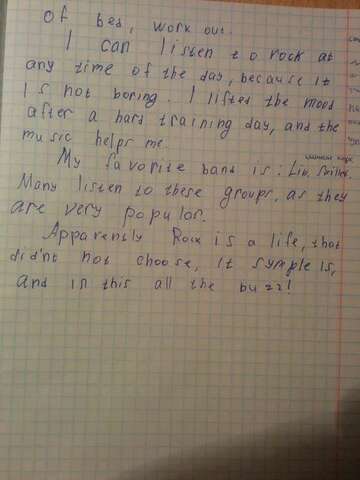 of bed, work out.
I can listen to rock at
any time of the day, because it
is not boring. I lifted the mood
after a hard training day, and the
music helps me.
My favorite band is: Lin,
Many listen to these groups, as they
are very popular.
Apparently Rock is a life, that
didn't not choose, it symple is,
and in this all the buzz!